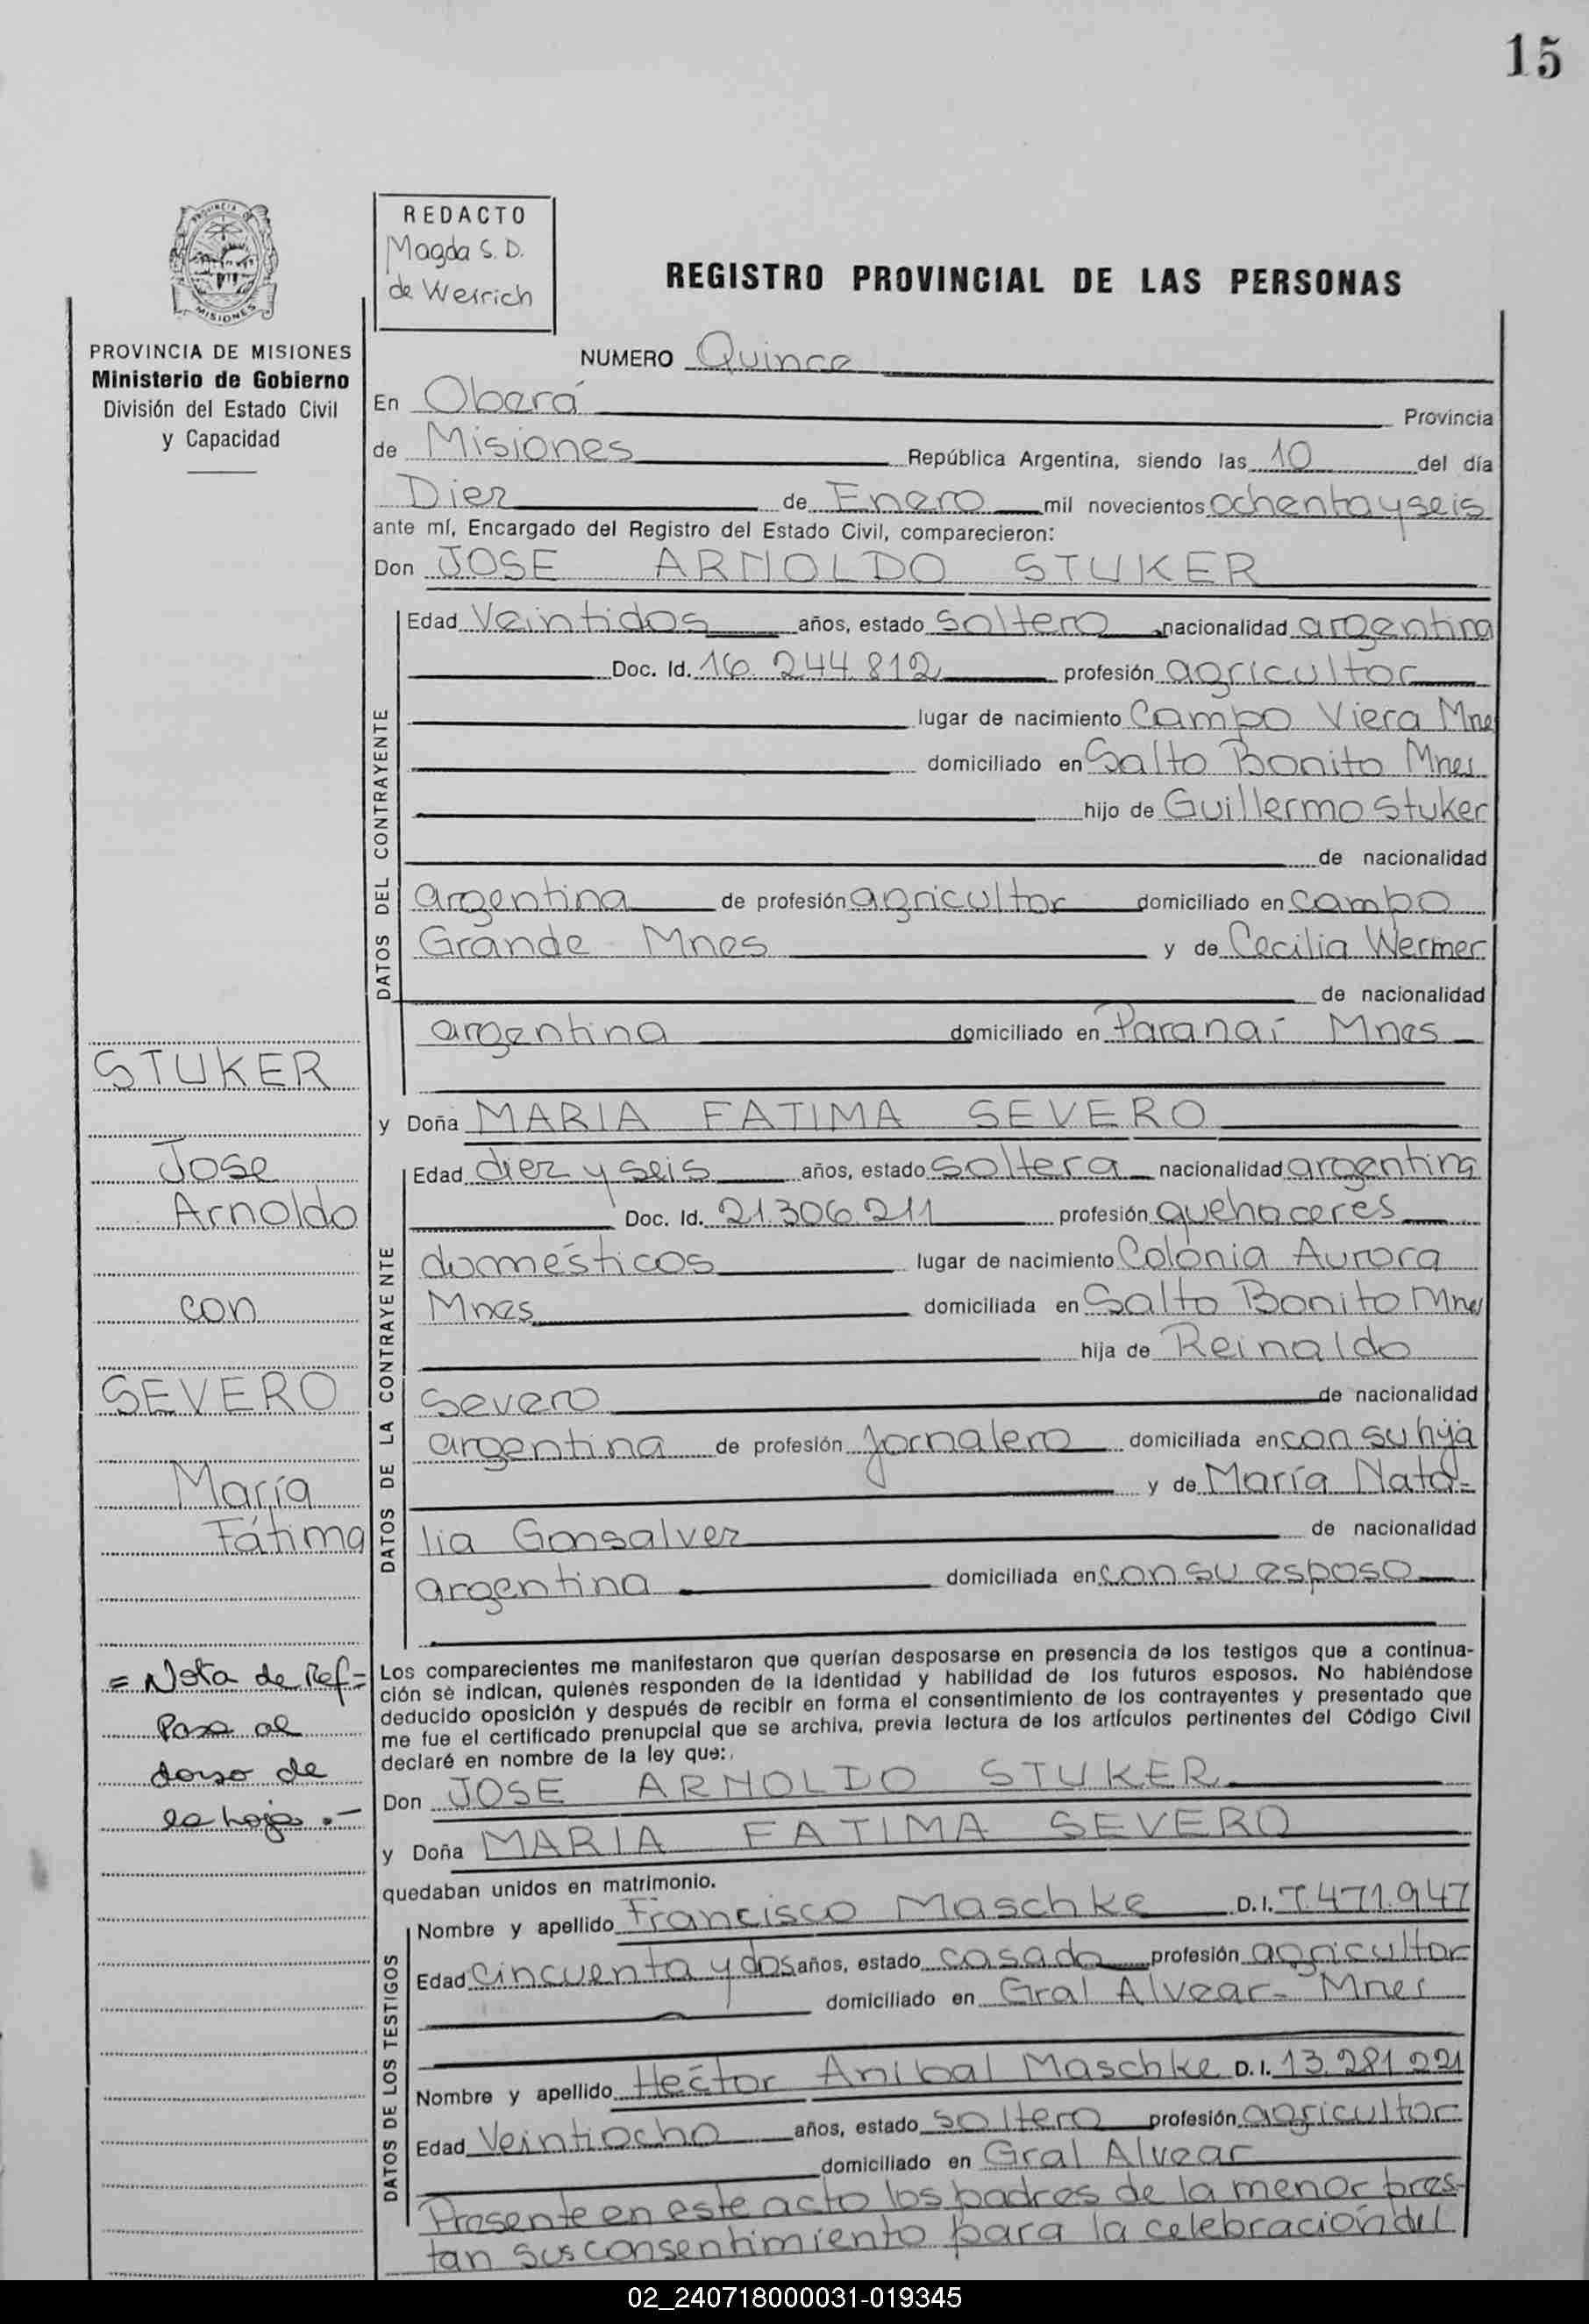 15
REDACTO
Magda S. D.
de Weirich
REGISTRO PROVINCIAL DE LAS PERSONAS
PROVINCIA DE MISIONES
Ministerio de Gobierno
División del Estado Civil
y Capacidad
NUMERO Quince
En Oberá Provincia
de Misiones República Argentina, siendo las 10 del día
Diez de Enero mil novecientos ochenta y seis
ante mí, Encargado del Registro del Estado Civil, comparecieron:
Don JOSE ARNOLDO STUKER
DATOS DEL CONTRAYENTE
Edad Veintidos años, estado soltero nacionalidad argentina
Doc. Id. 16.244.812 profesión agricultor
lugar de nacimiento Campo Viera Mnes
domiciliado en Salto Bonito Mnes
hijo de Guillermo Stuker
de nacionalidad
argentina de profesión agricultor domiciliado en Campo
Grande Mnes y de Cecilia Wermer
de nacionalidad
argentina domiciliado en Paranaí Mnes
STUKER
Jose
Arnoldo
con
SEVERO
María
Fátima
y Doña MARIA FATIMA SEVERO
DATOS DE LA CONTRAYENTE
Edad diez y seis años, estado soltera nacionalidad argentina
Doc. Id. 21.306.211 profesión quehaceres
domésticos lugar de nacimiento Colonia Aurora
Mnes domiciliada en Salto Bonito Mnes
hija de Reinaldo
Severo de nacionalidad
argentina de profesión jornalero domiciliada en con su hija
y de María Nata-
lia Gonsalvez de nacionalidad
argentina domiciliada en con su esposo
= Nota de Ref=
Pasa al
dorso de
la hoja.-
Los comparecientes me manifestaron que querían desposarse en presencia de los testigos que a continua-
ción se indican, quienes responden de la identidad y habilidad de los futuros esposos. No habiéndose
deducido oposición y después de recibir en forma el consentimiento de los contrayentes y presentado que
me fue el certificado prenupcial que se archiva, previa lectura de los artículos pertinentes del Código Civil
declaré en nombre de la ley que:
Don JOSE ARNOLDO STUKER
y Doña MARIA FATIMA SEVERO
quedaban unidos en matrimonio.
DATOS DE LOS TESTIGOS
Nombre y apellido Francisco Maschke D.I. 7.471.947
Edad Cincuenta y dos años, estado casado profesión agricultor
domiciliado en Gral Alvear- Mnes
Nombre y apellido Héctor Anibal Maschke D.I. 13.281.221
Edad Veintiocho años, estado soltero profesión agricultor
domiciliado en Gral Alvear
Presente en este acto los padres de la menor pres-
tan sus consentimiento para la celebración del
02_240718000031-019345